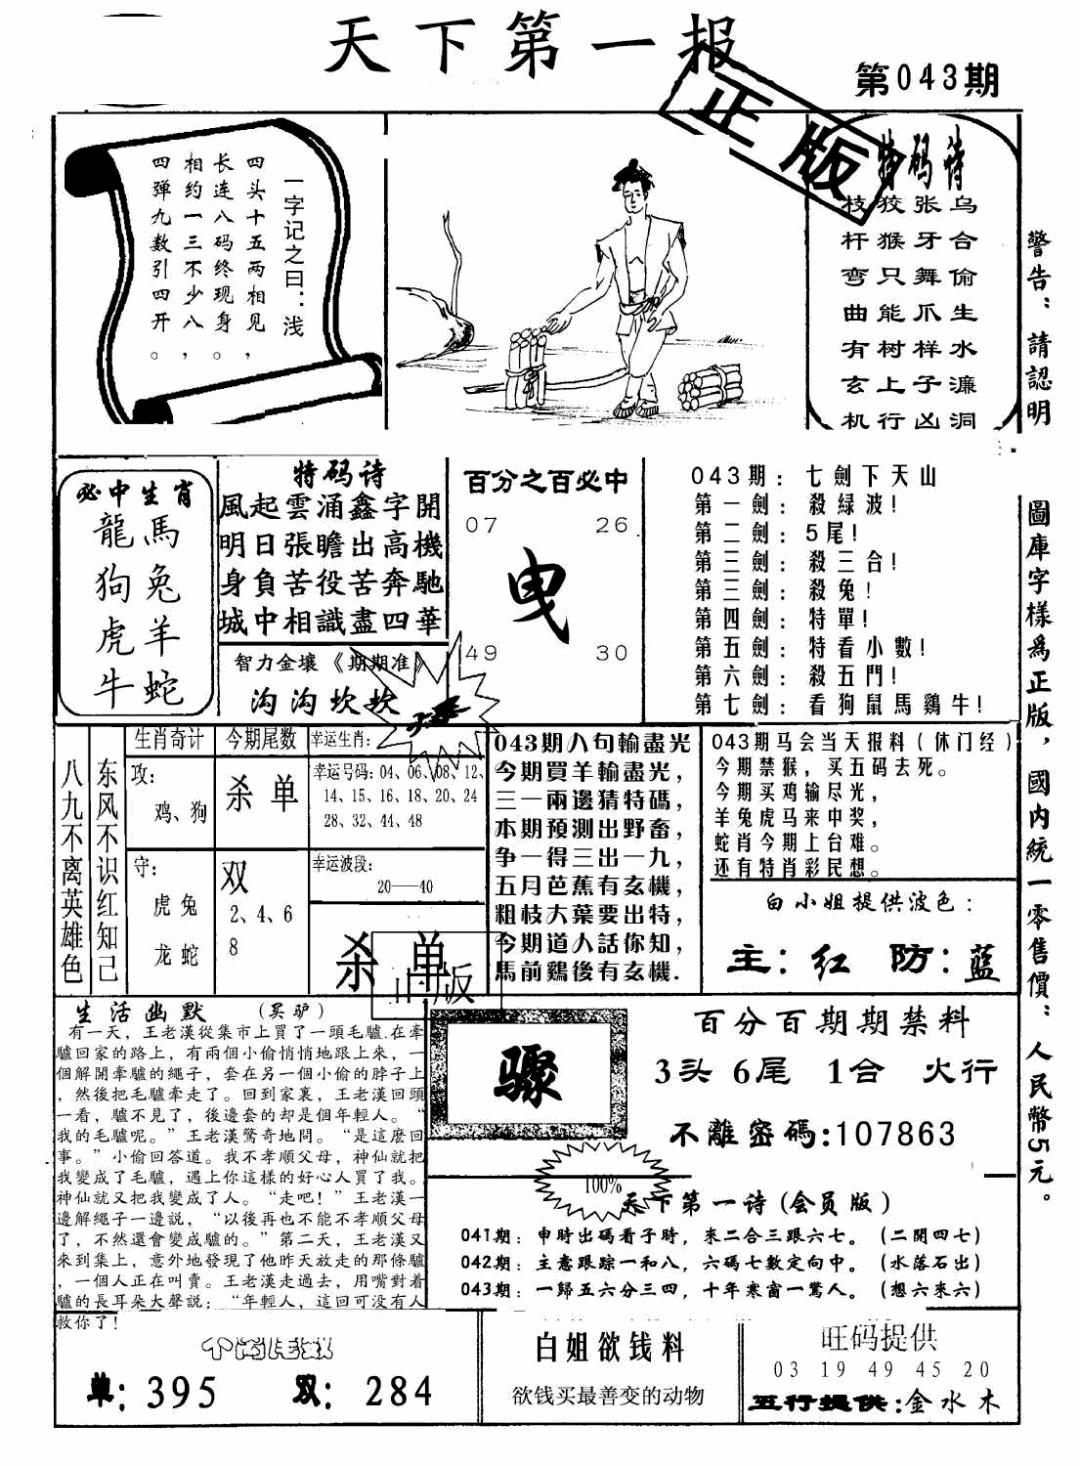 天下第一报
第043期
正版
一字记之曰：浅
四头十五两相见，
长连八码终现身。
相约一三不少八，
四弹九数引四开。
特码诗
乌合偷生水濂洞
张牙舞爪样子凶
狡猴只能树上行
枝杆弯曲有玄机
警告：請認明
圖庫字樣爲正版，國内統一零售價：人民幣5元。
必中生肖
龍馬
狗兔
虎羊
牛蛇
特码诗
風起雲涌鑫字開
明日張瞻出高機
身負苦役苦奔馳
城中相識盡四華
智力金壤《期期准》
沟沟坎坎
百分之百必中
07 26
曳
49 30
043期：七劍下天山
第一劍：殺緑波！
第二劍：5尾！
第三劍：殺三合！
第三劍：殺兔！
第四劍：特單！
第五劍：特看小數！
第六劍：殺五門！
第七劍：看狗鼠馬鷄牛！
八九不离英雄色
东风不识红知己
生肖奇计
攻：
鸡、狗
守：
虎兔
龙蛇
今期尾数
杀单
双
2、4、6
8
幸运生肖：
幸运号码：04、06、08、12、
14、15、16、18、20、24
28、32、44、48
幸运波段：
20——40
杀单
正版
043期八句輸盡光
今期買羊輸盡光，
三一兩邊猜特碼，
本期預測出野畜，
争一得三出一九，
五月芭蕉有玄機，
粗枝大葉要出特，
今期道人話你知，
馬前鷄後有玄機.
043期马会当天报料（休门经）
今期禁猴，买五码去死。
今期买鸡输尽光，
羊兔虎马来中奖，
蛇肖今期上台难。
还有特肖彩民想。
白小姐提供波色：
主：红 防：蓝
生活幽默 （买驴）
有一天，王老漢從集市上買了一頭毛驢.在牽
驢回家的路上，有兩個小偷悄悄地跟上來，一
個解開牽驢的繩子，套在另一個小偷的脖子上
，然後把毛驢牽走了。回到家裏，王老漢回頭
一看，驢不見了，後邊套的却是個年輕人。“
我的毛驢呢。”王老漢驚奇地問。“是這麼回
事。”小偷回答道。我不孝順父母，神仙就把
我變成了毛驢，遇上你這樣的好心人買了我。
神仙就又把我變成了人。“走吧！”王老漢一
邊解繩子一邊説，“以後再也不能不孝順父母
了，不然還會變成驢的。”第二天，王老漢又
來到集上，意外地發現了他昨天放走的那條驢
，一個人正在叫賣。王老漢走過去，用嘴對着
驢的長耳朵大聲説：“年輕人，這回可没有人
救你了！
骤
百分百期期禁料
3头 6尾 1合 火行
不離密碼:107863
100%
天下第一诗(会员版)
041期：申時出碼看子時，來二合三跟六七。（二開四七）
042期：主意跟踪一和八，六碼七數定向中。（水落石出）
043期：一歸五六分三四，十年寒窗一驚人。（想六來六）
单：395 双：284
白姐欲钱料
欲钱买最善变的动物
旺码提供
03 19 49 45 20
五行提供:金水木